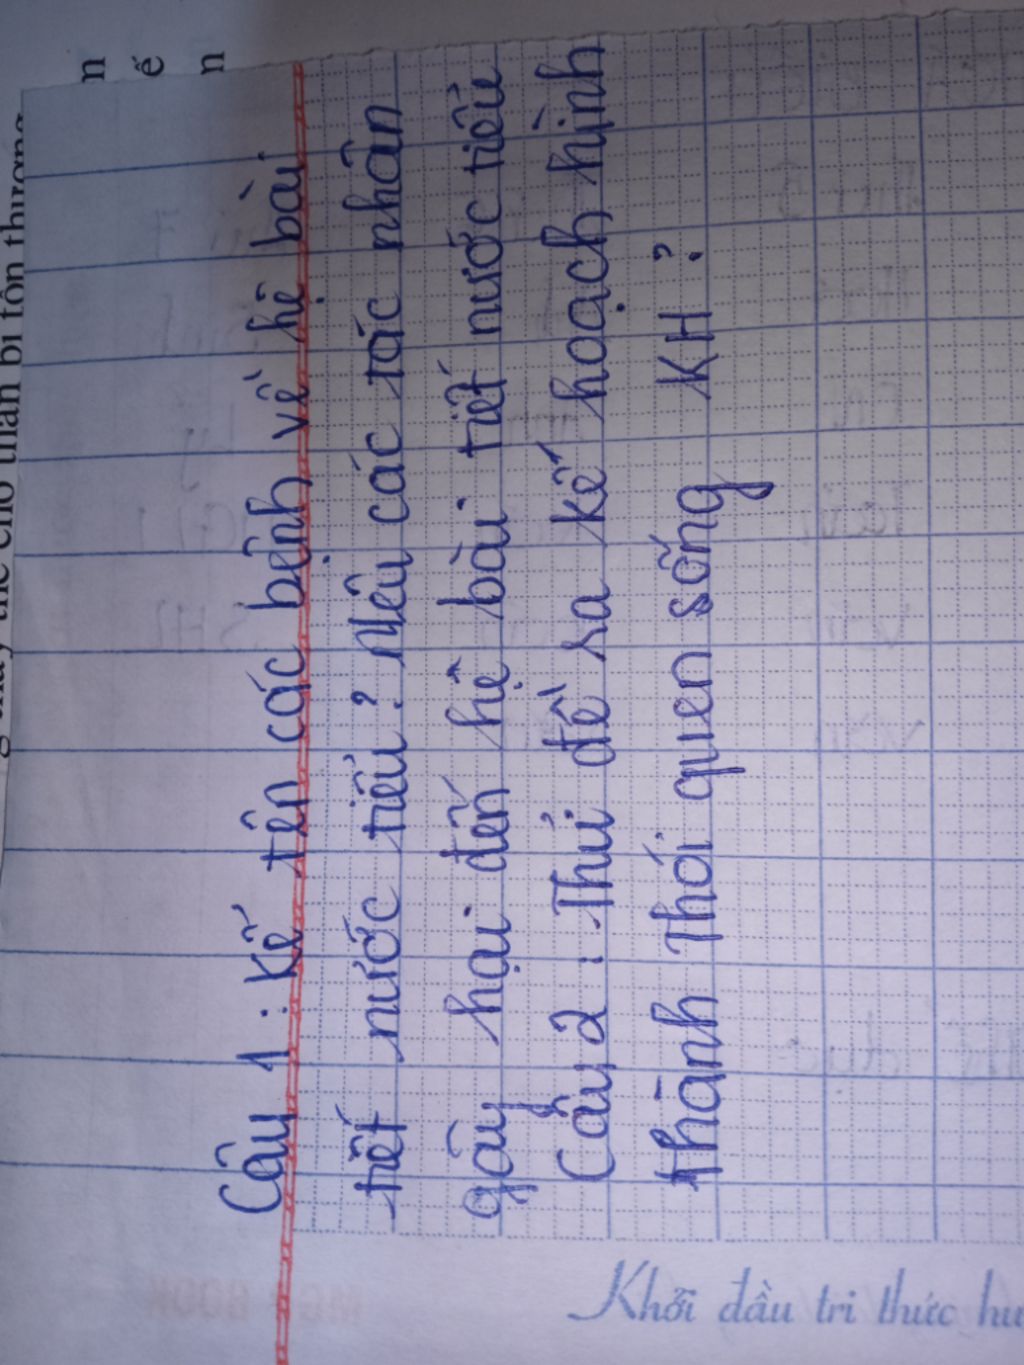 n
ế
n
Câu 1 : Kể tên các bệnh về hệ bài
tiết nước tiểu ? Nêu các tác nhân
gây hại đến hệ bài tiết nước tiểu
Câu 2 : Thử đề ra kế hoạch hình
thành Thói quen sống KH ?
Khởi đầu tri thức